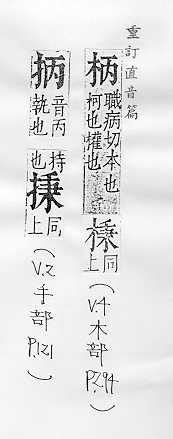 重訂直音篇
柄 職病切本也
柯也權也
棅 同上 (V.4 木部 P.294)
抦 音丙持
執也也
掶 同上 (V.2 手部 P.121)